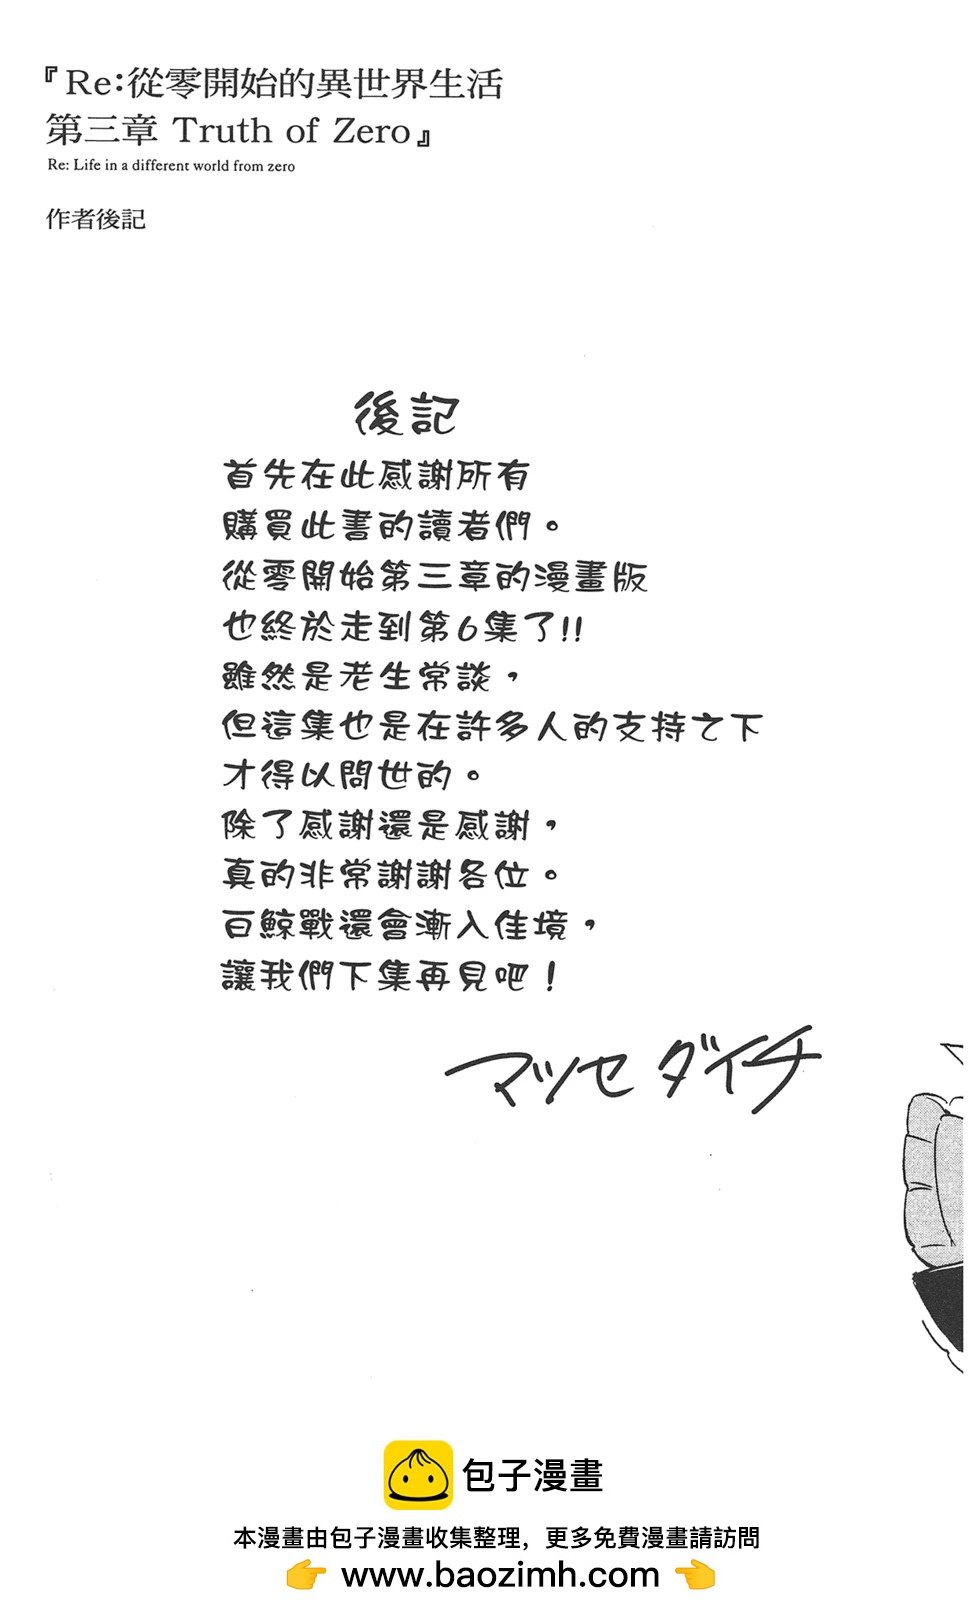 『Re:從零開始的異世界生活
第三章 Truth of Zero』
Re: Life in a different world from zero
作者後記
後記
首先在此感謝所有
購買此書的讀者們。
從零開始第三章的漫畫版
也終於走到第6集了!!
雖然是老生常談，
但這集也是在許多人的支持之下
才得以問世的。
除了感謝還是感謝，
真的非常謝謝各位。
百鯨戰還會漸入佳境，
讓我們下集再見吧！
マツセダイチ
包子漫畫
本漫畫由包子漫畫收集整理，更多免費漫畫請訪問
👉 www.baozimh.com 👈